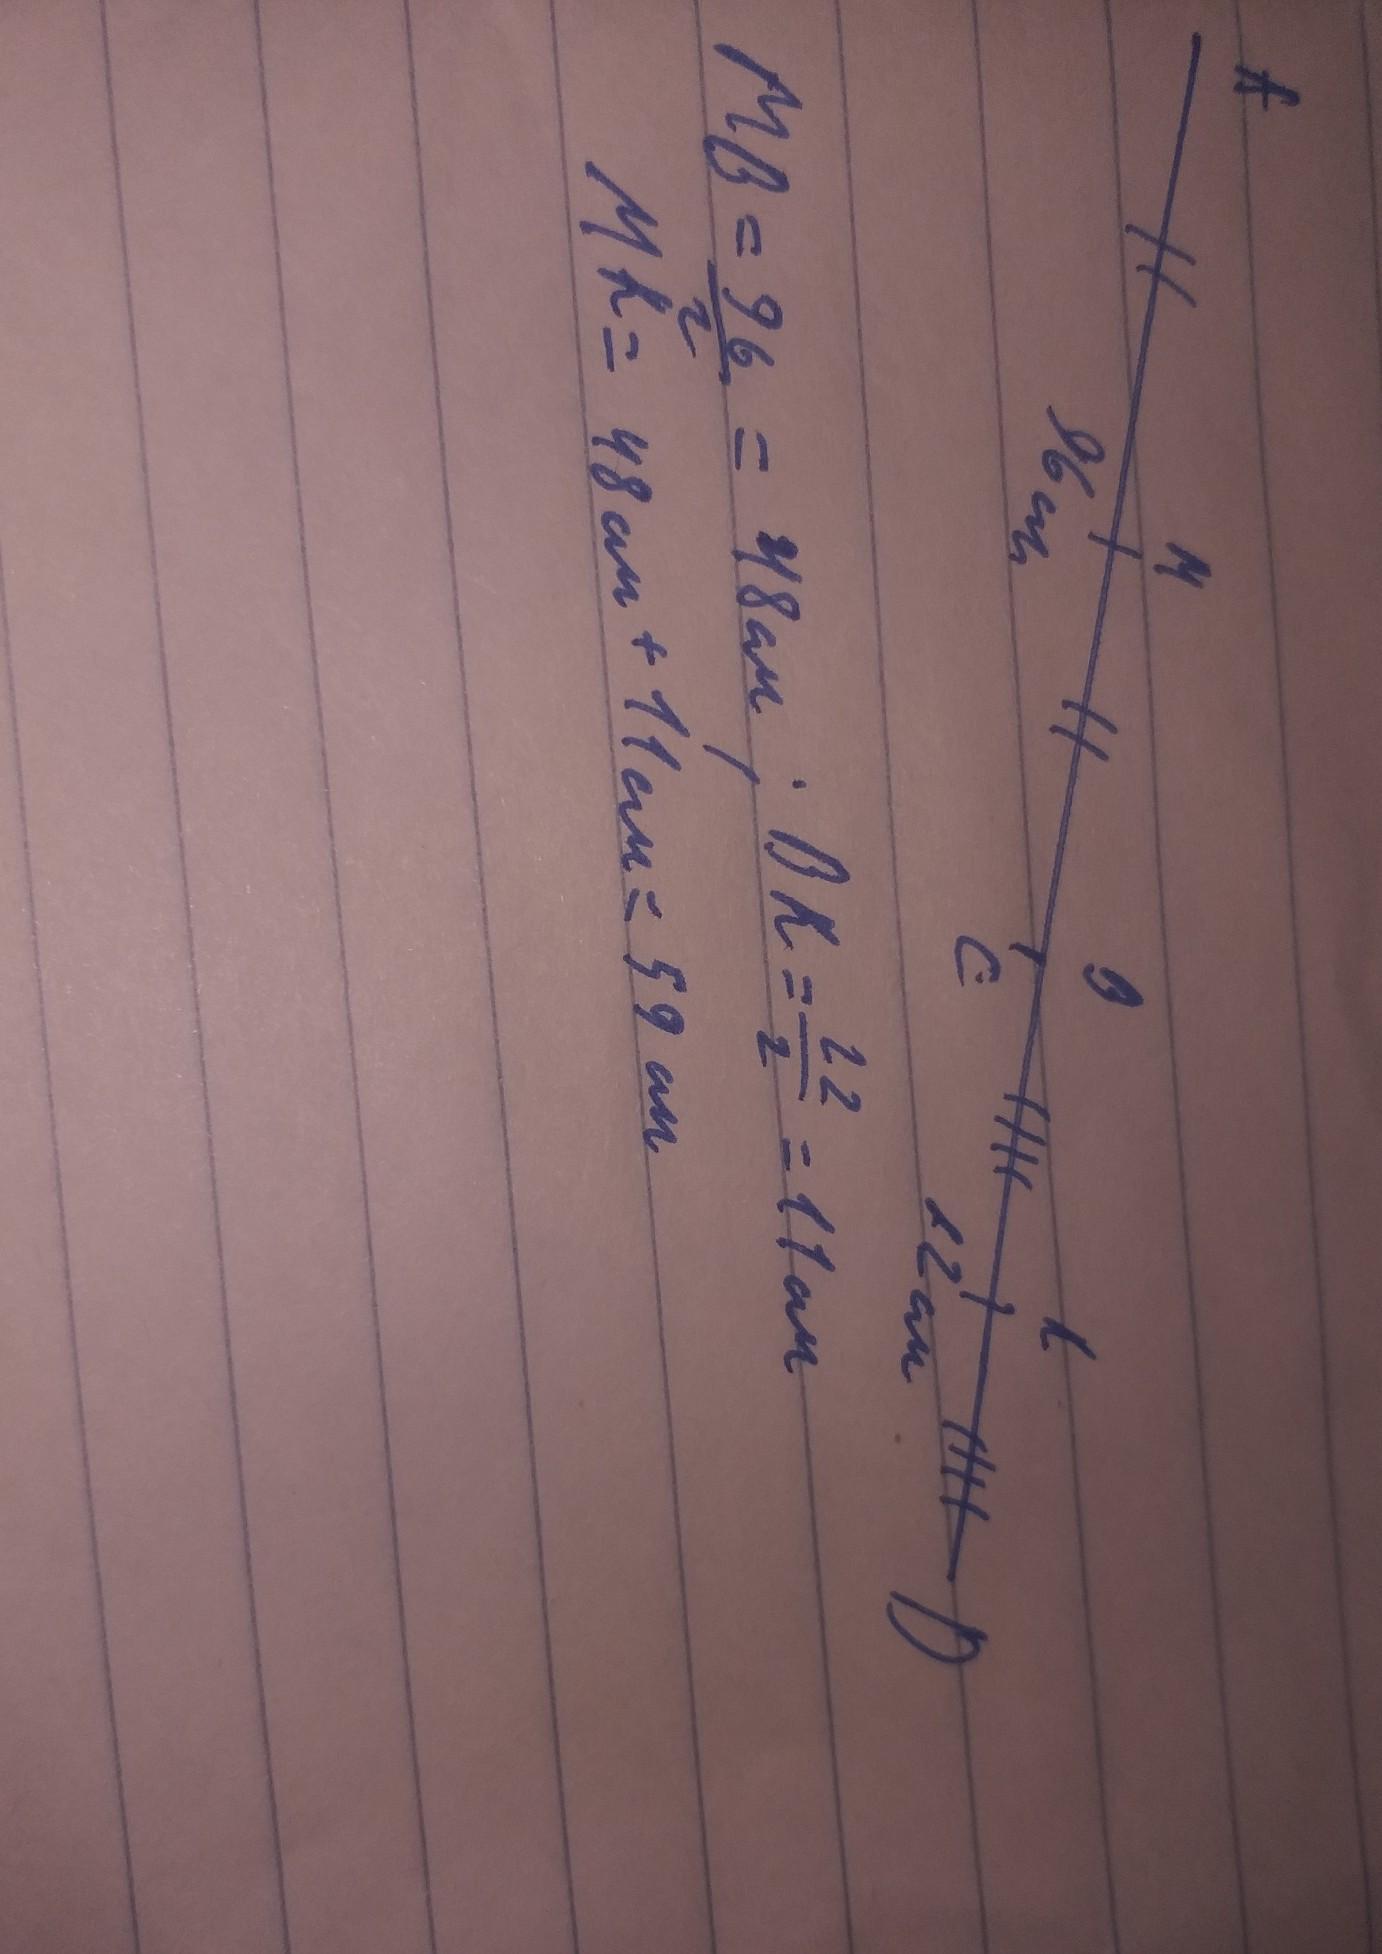 A M B K
96 см C 22 см D
MB = 96/2 = 48 см; BK = 22/2 = 11 см
MK = 48 см + 11 см = 59 см